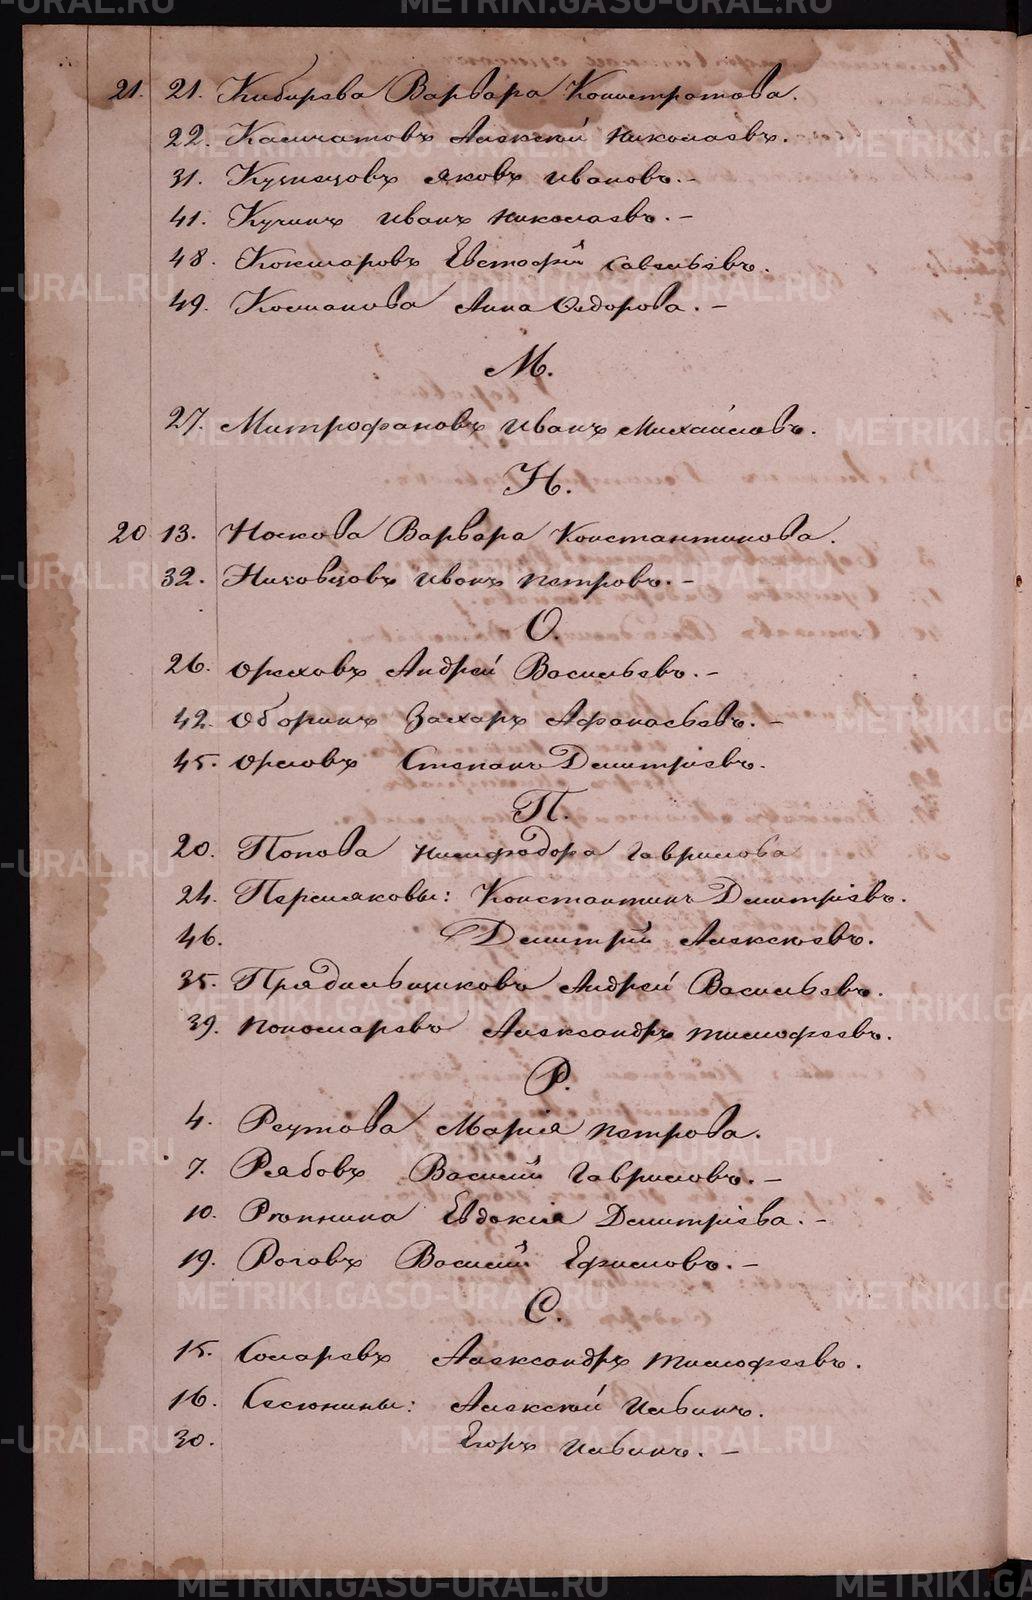 21. 21. Кибирева Варвара Конистратова.
22. Камчатовъ Алексѣй Николаевъ.
31. Кузнецовъ Яковъ Ивановъ. -
41. Кучинъ Иванъ Николаевъ. -
48. Кокшаровъ Евстафій Савельевъ.
49. Анна Ѳедорова. -
М.
27. Митрофановъ Иванъ Михайловъ.
Н.
20 13. Носкова Варвара Константинова.
32. Низовцовъ Иванъ Петровъ. -
О.
26. Орѣховъ Андрей Васильевъ. -
42. Оборинъ Захаръ Афанасьевъ. -
45. Орловъ Степанъ Димитріевъ.
П.
20. Попова Нимфодора Гаврилова
24. Пермяковы: Константинъ Димитріевъ.
46. Димитрій Алексѣевъ.
35. Прядильщиковъ Андрей Васильевъ.
39. Пономаревъ Александръ Тимофеевъ.
Р.
4. Реутова Марія Петрова.
7. Рябовъ Василій Гавриловъ. -
10. Евдокія Димитріева. -
19. Роговъ Василій Ефимовъ. -
С.
15. Сомаревъ Александръ Тимофеевъ.
16. Сесюнины: Алексѣй Ильинъ.
30. Егоръ Ильинъ. -
METRIKI.GASO-URAL.RU